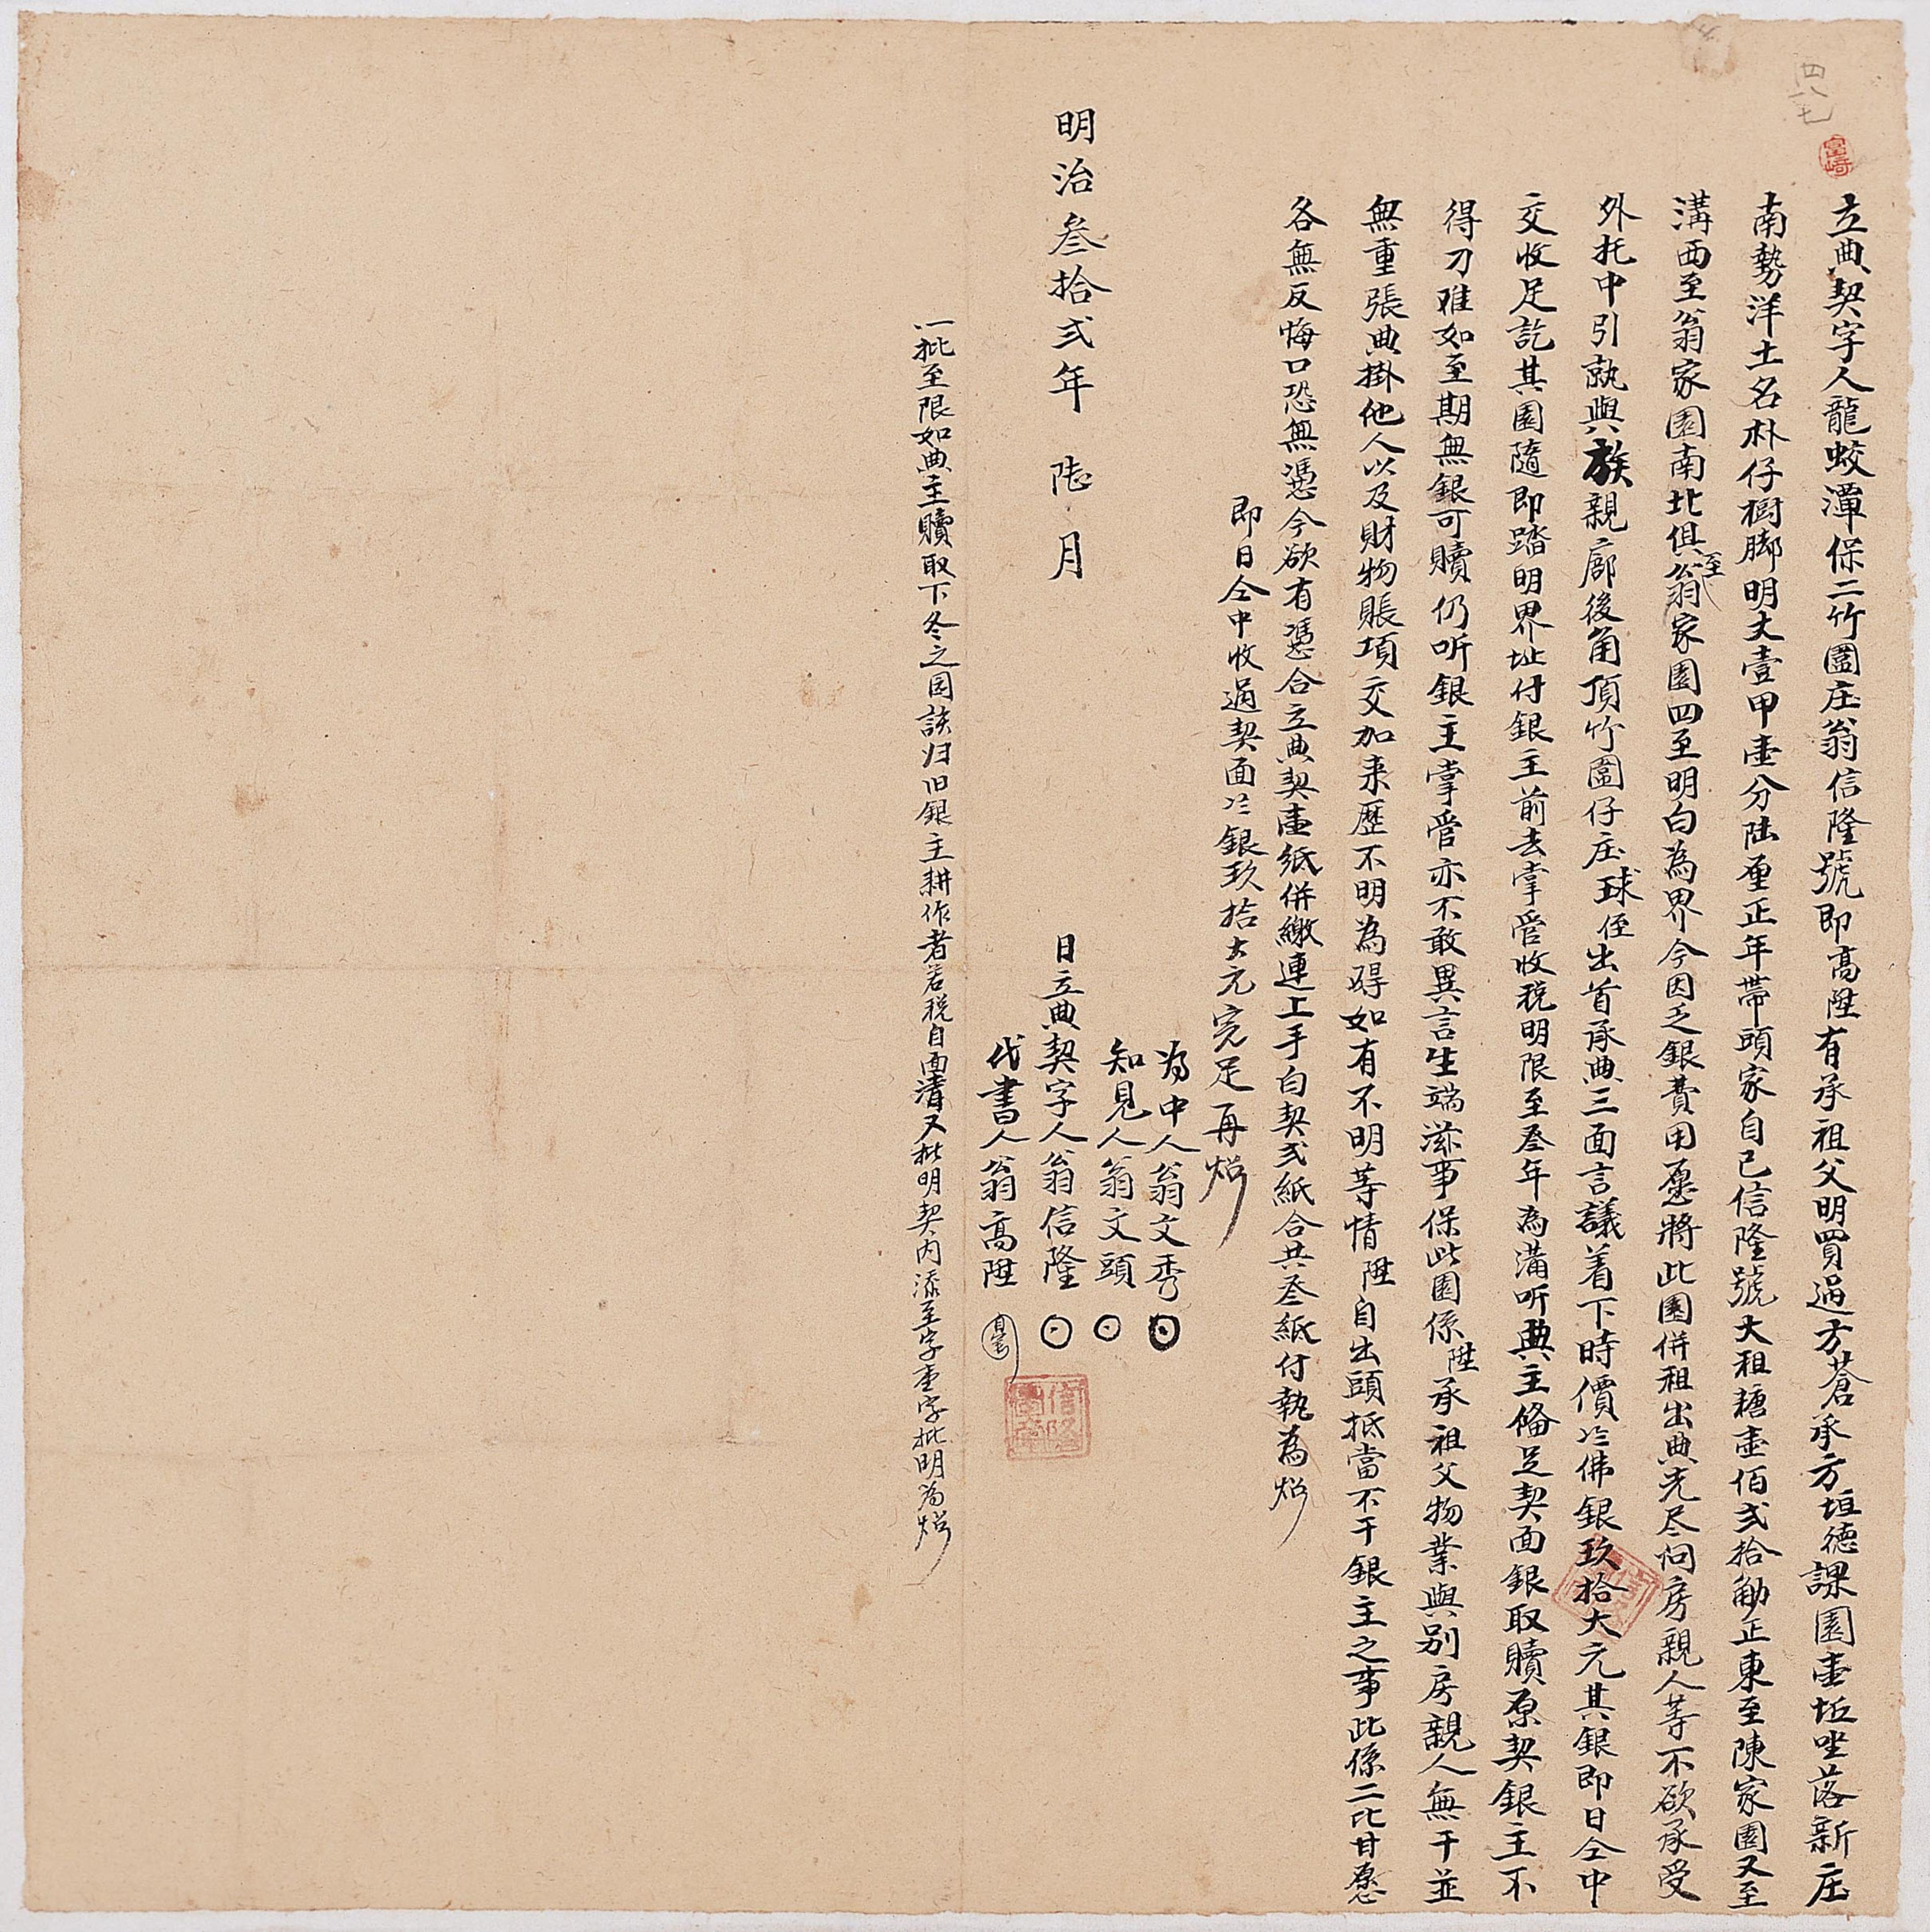 四八七
富崎
立典契字人龍蛟潭保二竹圍庄翁信隆號即高陞有承祖父明買過方蒼承方垣德課園壹坵坐落新庄
南勢洋土名朴仔樹脚明丈壹甲壹分陆厘正年帶頭家自己信隆號大租糖壹佰弍拾觔正東至陳家園又至
溝西至翁家園南北俱至翁家園四至明白為界今因乏銀費用愿將此園併租出典先尽问房親人等不欲承受
外托中引就與族親廍後角頂竹圍仔庄球侄出首承典三面言議着下時價佛銀玖拾大元其銀即日仝中
交收足訖其園隨即踏明界址付銀主前去掌管收税明限至叁年為滿听典主俻足契面銀取贖原契銀主不
得刁难如至期無銀可贖仍听銀主掌管亦不敢異言生端滋事保此園係陞承祖父物業與别房親人無干並
無重張典掛他人以及財物賬項交加来歷不明為碍如有不明等情陞自出頭抵當不干銀主之事此係二比甘愿
各無反悔口恐無憑今欲有憑合立典契壹紙併繳連上手白契弍紙合共叁紙付執為炤
即日仝中收過契面銀玖拾大元完足再炤
為中人翁文秀
知見人翁文頭
明治叁拾弍年陆月 日立典契字人翁信隆
代書人翁高陞
信隆
一批至限如典主贖取下冬之园該归旧銀主耕作者若税自面清又批明契内添至字壹字批明為炤